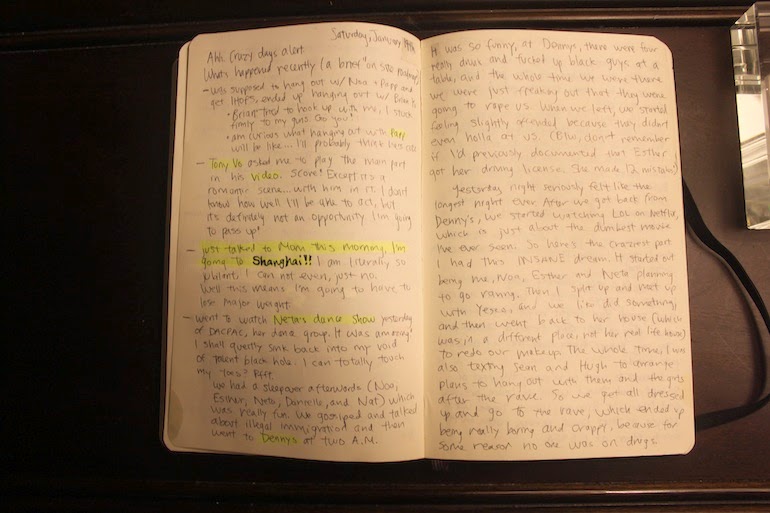 Saturday, January
Ahh. Crazy days alert.
What's happened recently (a brief "on site roundup")
- was supposed to hang out w/ Noa + Papp and
get IHOPs, ended up hanging out w/ Brian
• Brian tried to hook up with me, I stuck
firmly to my guns. Go you!
• am curious what hanging out with Papp
will be like... I'll probably think he's cute
- Tony Vo asked me to play the main part
in his video. Score! Except it's a
romantic scene... with him in it. I don't
know how well I'll be able to act, but
it's definitely not an opportunity I'm going
to pass up!
- Just talked to Mom this morning, I'm
going to Shanghai!! I am literally, so
jubilant, I can not even, just no.
Well this means I'm going to have to
lose major weight.
- Went to watch Neta's dance show yesterday
of DACPAC, her dance group. It was amazing
I shall quietly sink back into my void
of talent black hole. I can totally touch
my toes! Pfft.
We had a sleepover afterwords (Noa,
Esther, Neta, Danielle, and Nat) which
was really fun. We gossiped and talked
about illegal immigration and then
went to Dennys at two A.M.
It was so funny, at Dennys, there were four
really drunk and fucked up black guys at a
table, and the whole time we were there
we were just freaking out that they were
going to rape us. When we left, we started
feeling slightly offended because they didn't
even holla at us. (Btw, don't remember
if I'd previously documented that Esther
got her driving license. She made 12 mistakes)
Yesterday night seriously felt like the
longest night ever. After we got back from
Denny's, we started watching LOL on Netflix,
which is just about the dumbest movie
I've ever seen. So here's the craziest part
I had this INSANE dream. It started out
being me, Noa, Esther and Neta planning
to go raving. Then I split up and met up
with Yeska, and we like did something,
and then went back to her house (which
was in a different place, not her real life house)
to redo our makeup. The whole time, I was
also texting Sean and Hugh to arrange
plans to hang out with them and the girls
after the rave. So we get all dressed
up and go to the rave, which ended up
being really boring and crappy, because for
some reason no one was on drugs.